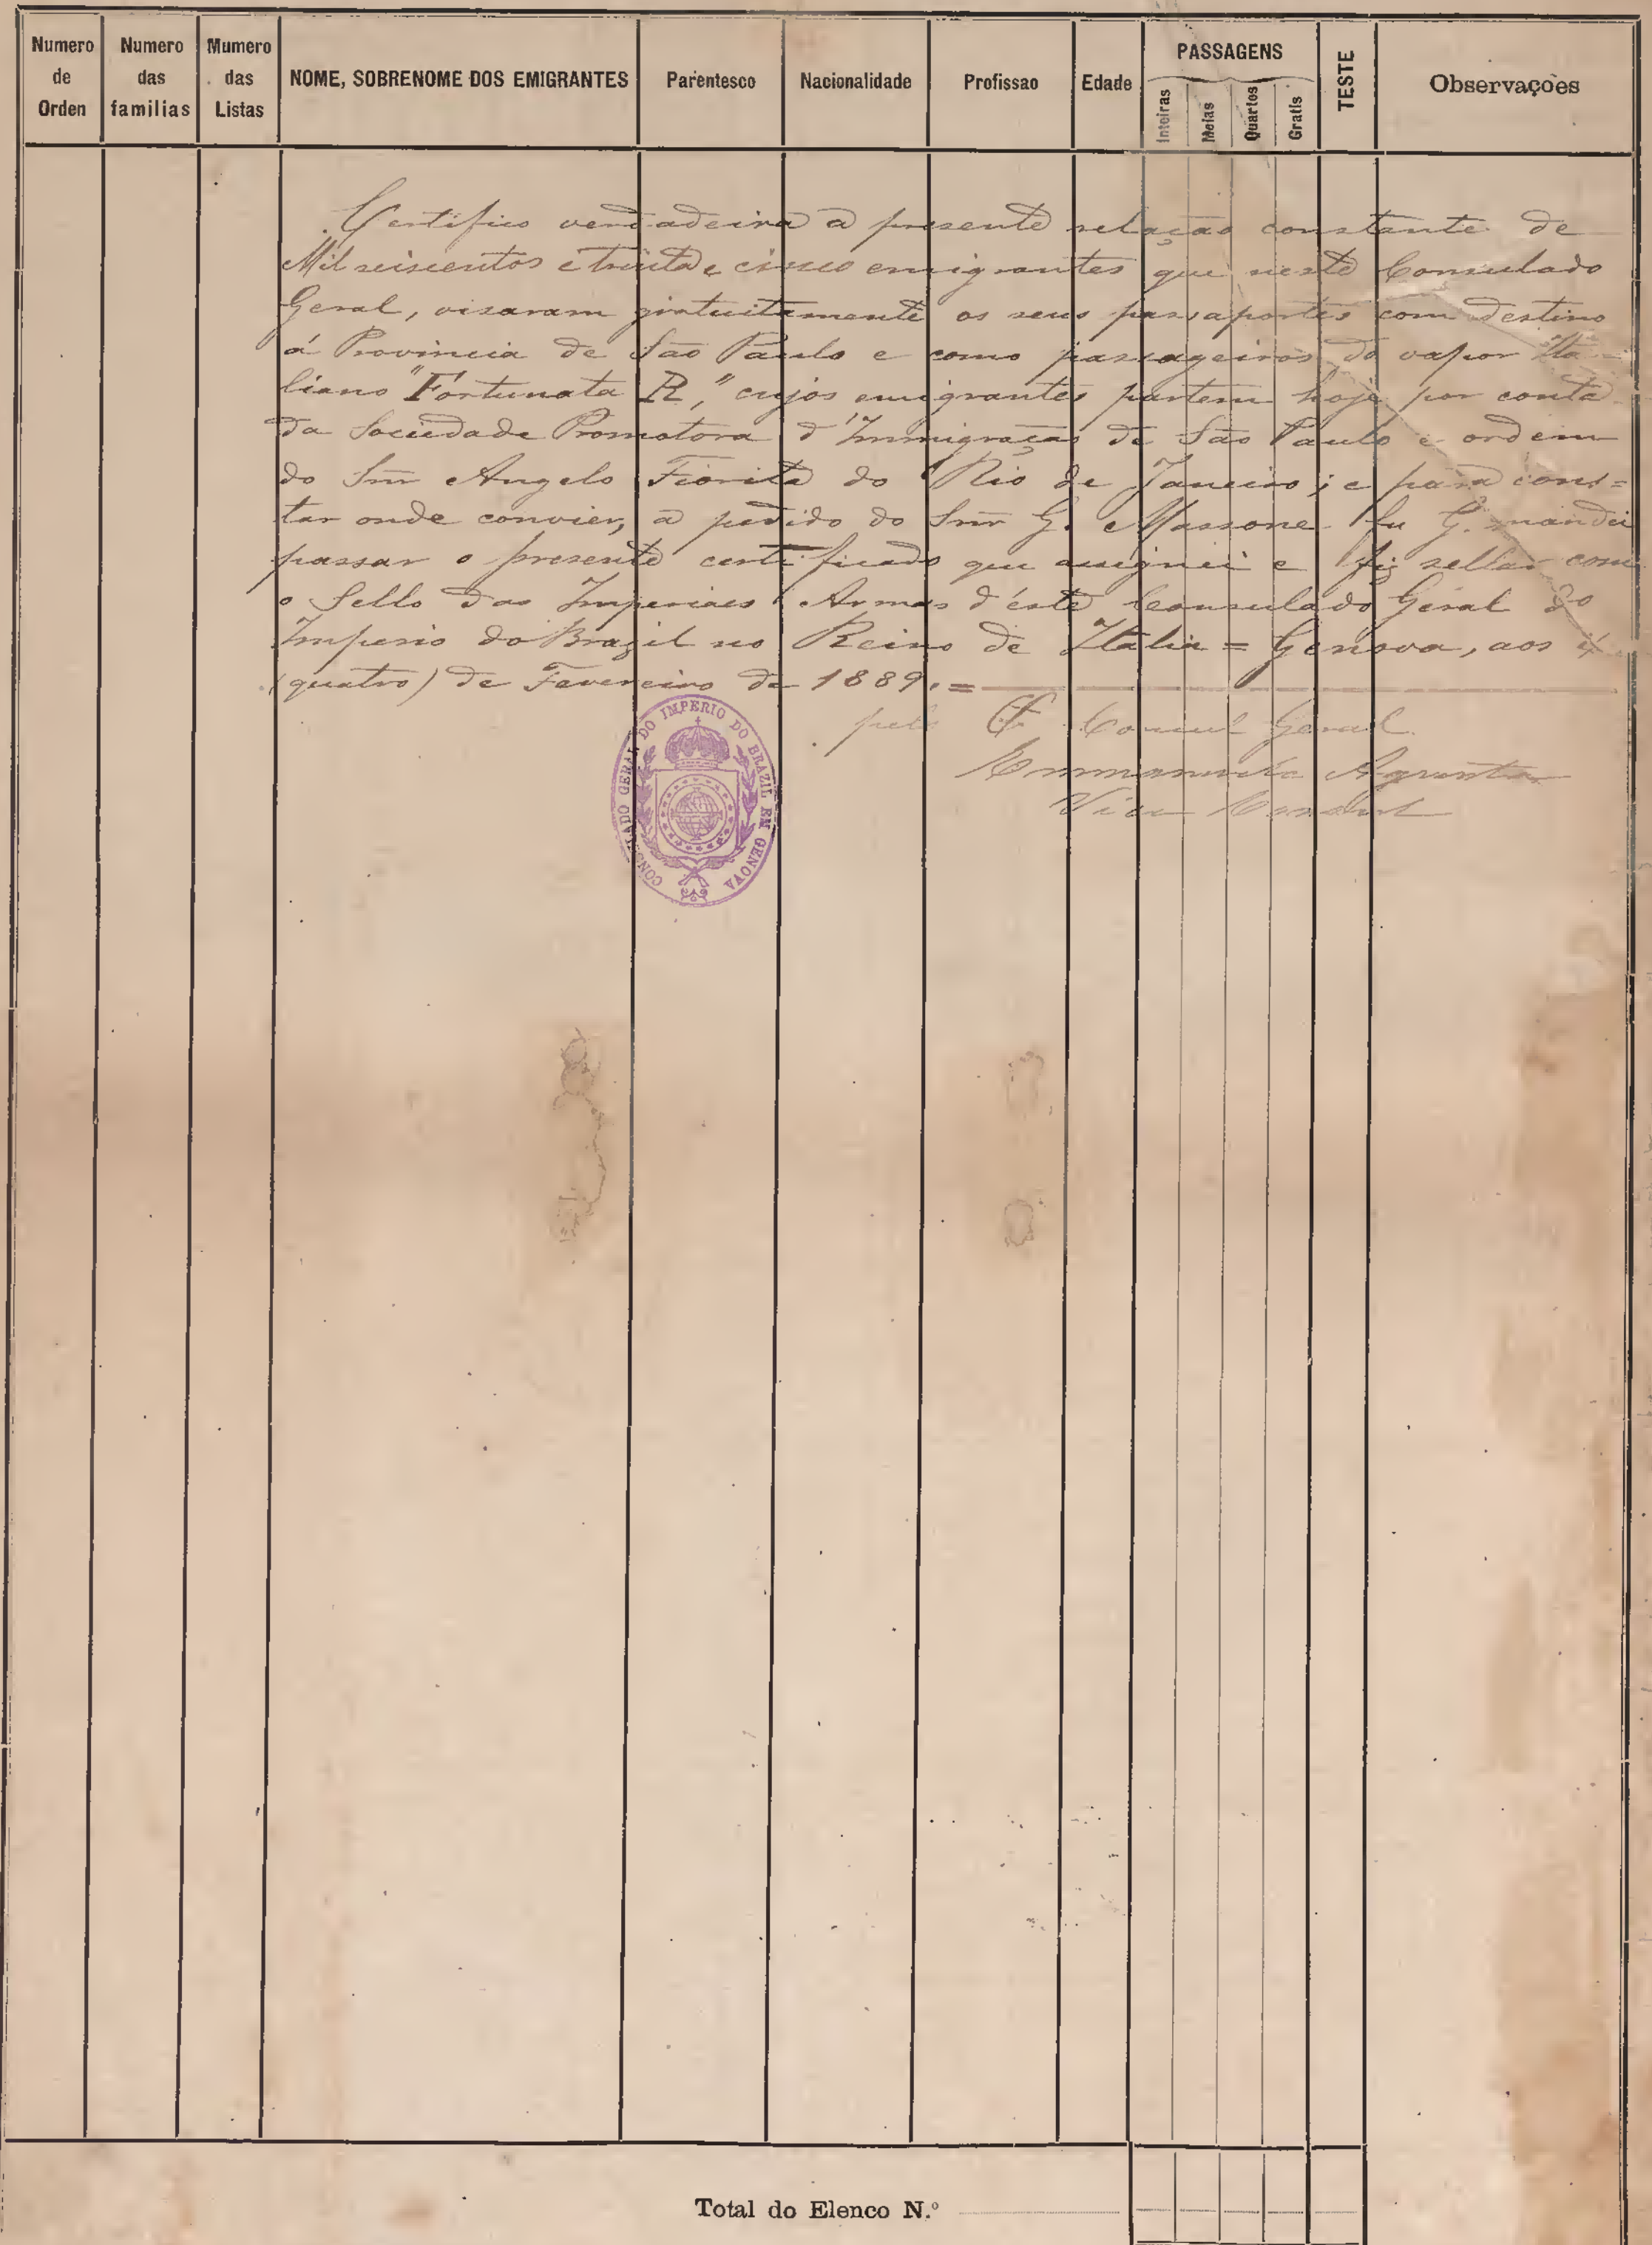 Numero de Orden
Numero das familias
Mumero das Listas
NOME, SOBRENOME DOS EMIGRANTES
Parentesco
Nacionalidade
Profissao
Edade
PASSAGENS
Inteiras
Meias
Quartos
Gratis
TESTE
Observações
Certifico verdadeira a presente relação constante de
Mil seiscentos e trinta e cinco emigrantes que neste Consulado
Geral, visaram gratuitamente os seus passaportes com destino
á Provincia de São Paulo e como passageiros do vapor Ita
liano "Fortunata R," cujos emigrantes partem hoje por conta
da Sociedade Promotora d'Immigração de São Paulo e ordem
do Snr Angelo Fiorita do Rio de Janeiro; e para cons=
tar onde convier, a pedido do Snr G. Massone fu G. mandei
passar o presente certificado que assignei e fiz sellar com
o Sello das Imperiaes Armas d'éste Consulado Geral do
Imperio do Brazil no Reino de Italia = Genova, aos 4
(quatro) de Fevereiro de 1889. =
pelo Consul Geral
Vice Consul
CONSULADO GERAL DO IMPERIO DO BRAZIL EM GENOVA
Total do Elenco N.º